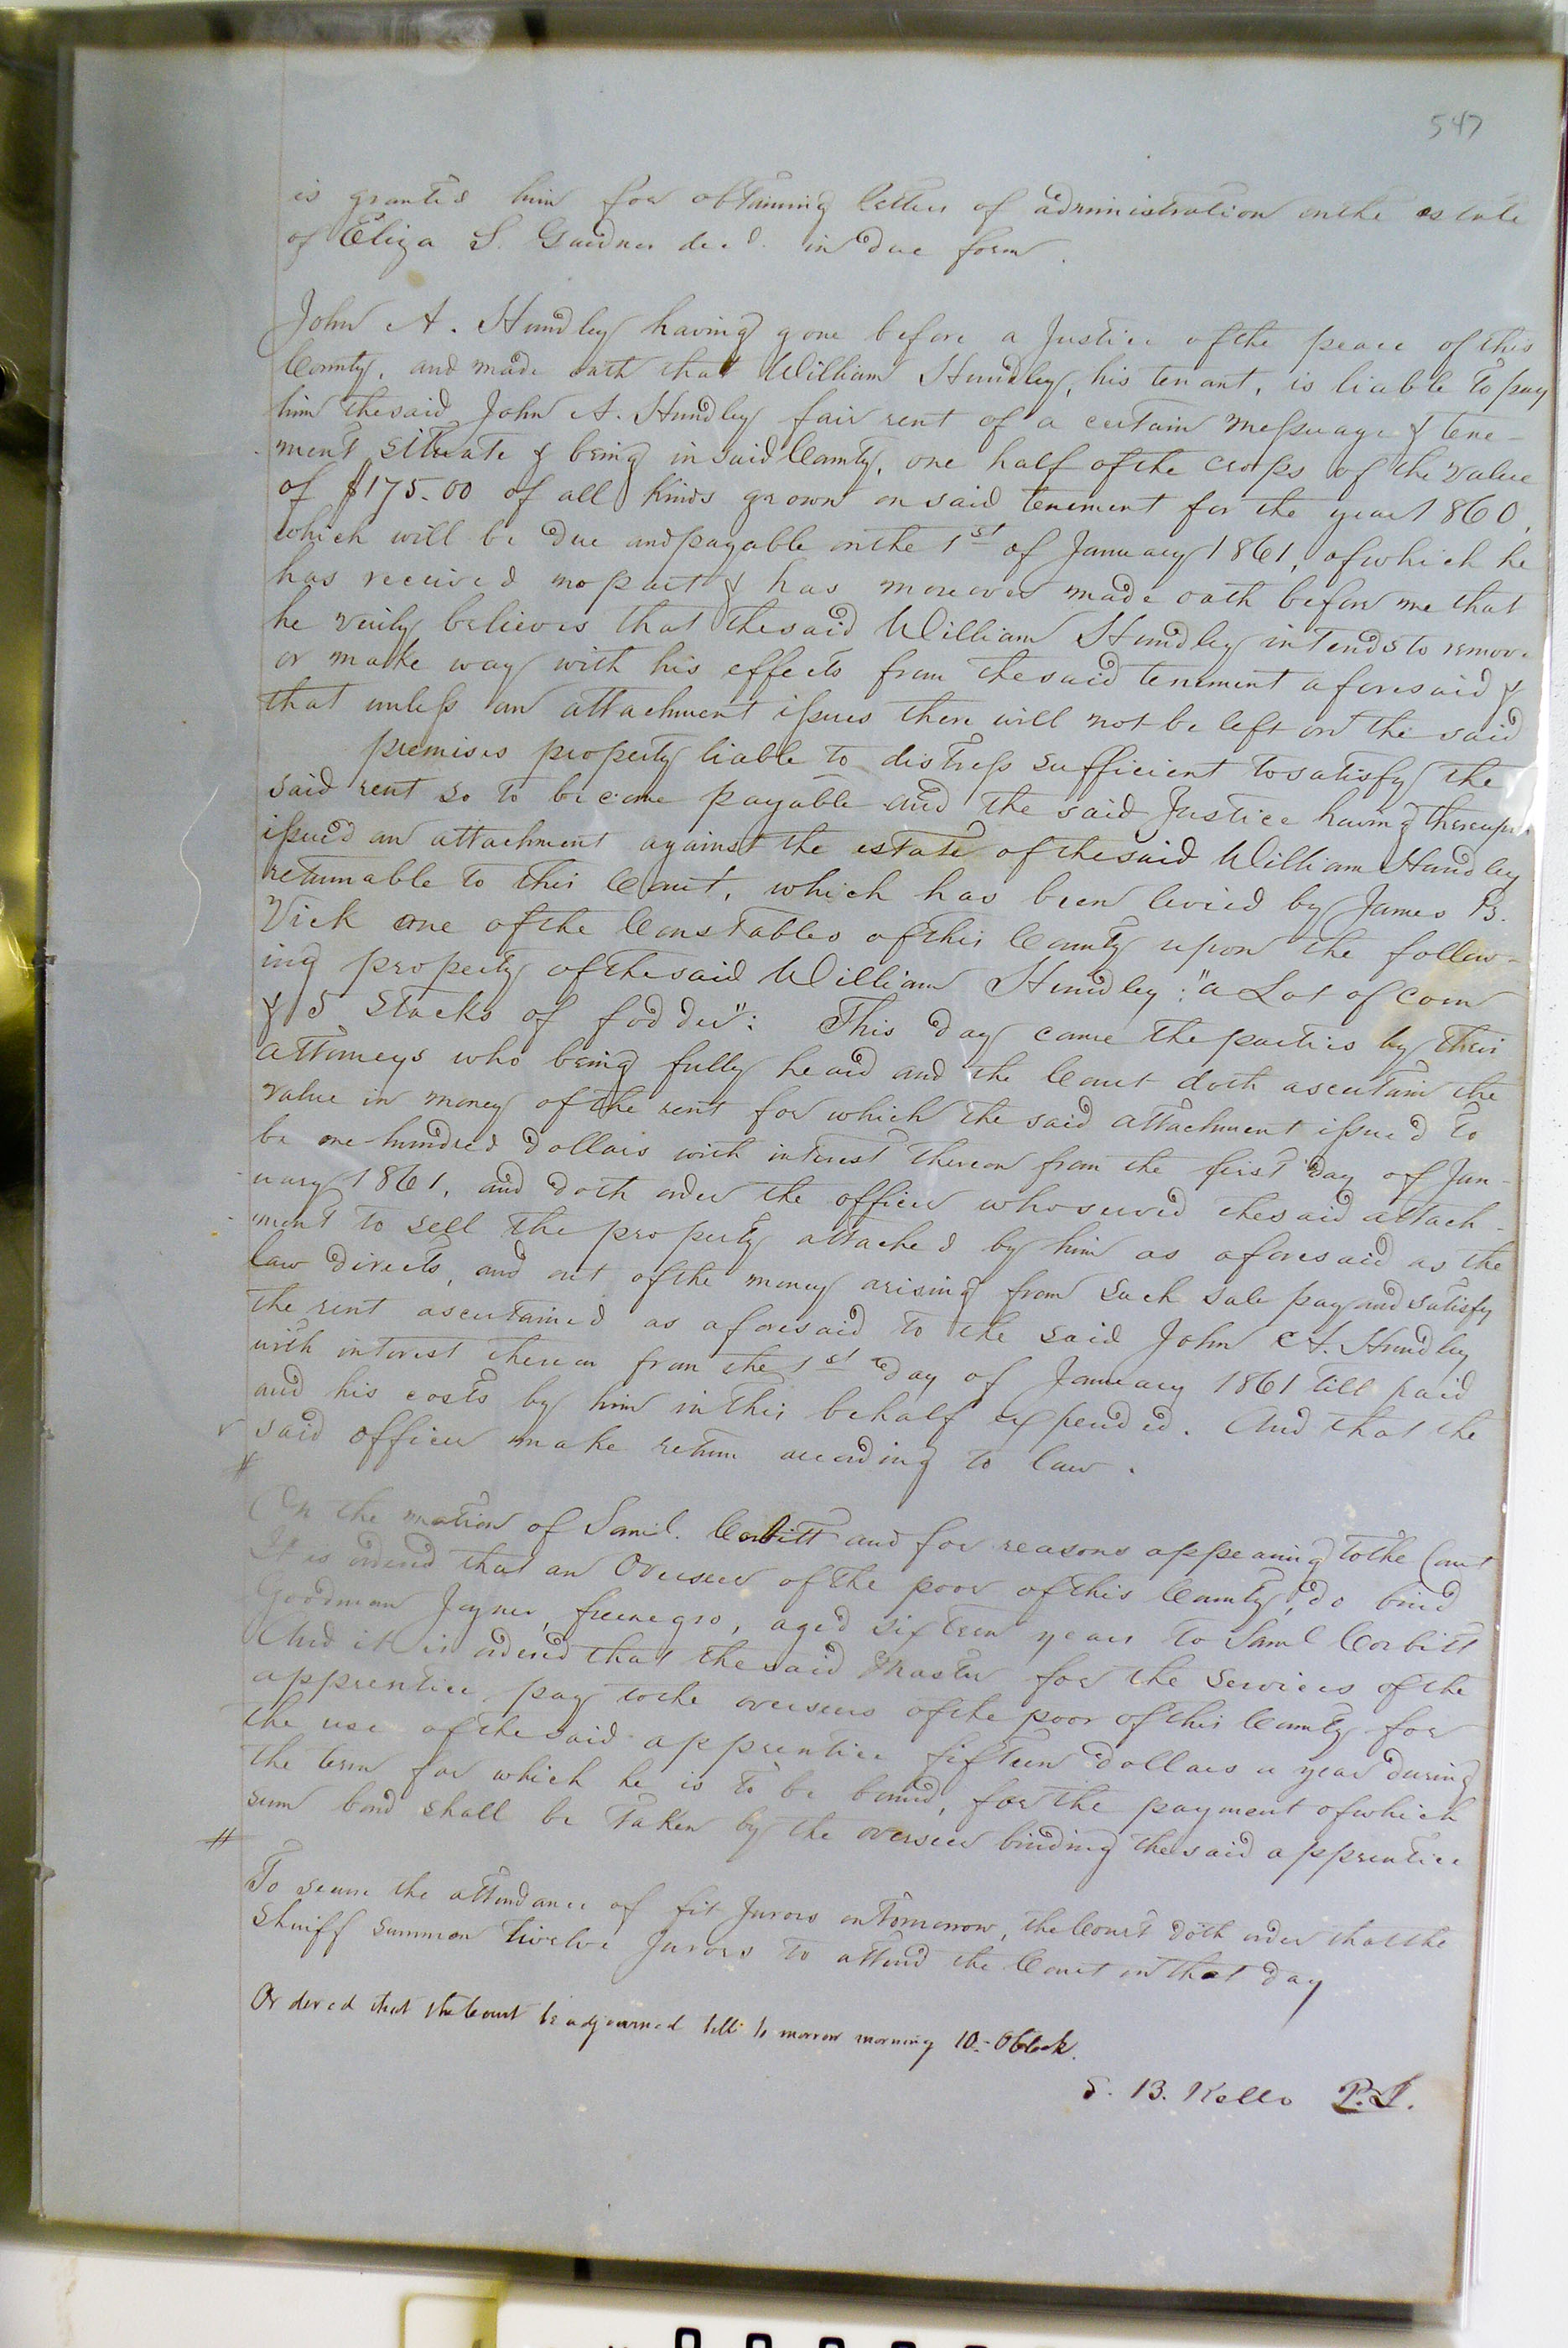 547
is granted him for obtaining letters of administration on the estate
of Eliza S. Gardner decd. in due form.
John A. Hundley having gone before a Justice of the peace of this
County, and made oath that William Hundley, his tenant, is liable to pay
him the said John A. Hundley fair rent of a certain messuage & tene-
ment situate & being in said County, one half of the crops of the value
of $175.00 of all kinds grown on said tenement for the year 1860,
which will be due and payable on the 1st of January 1861, of which he
has received no part & has moreover made oath before me that
he verily believes that the said William Hundley intends to remove
or make way with his effects from the said tenement aforesaid &
that unless an attachment issues there will not be left on the said
premises property liable to distress sufficient to satisfy the
said rent so to become payable and the said Justice having thereupon
issued an attachment against the estate of the said William Hundley
returnable to this Court, which has been levied by James B.
Vick one of the Constables of this County upon the follow-
ing property of the said William Hundley: "a Lot of corn
& 5 stacks of fodder": This day came the parties by their
attorneys who being fully heard and the Court doth ascertain the
value in money of the rent for which the said attachment issued to
be one hundred dollars with interest thereon from the first day of Jan-
uary 1861, and doth order the officer who served the said attach-
ment to sell the property attached by him as aforesaid as the
law directs, and out of the money arising from such sale pay and satisfy
the rent ascertained as aforesaid to the said John A. Hundley
with interest thereon from the 1st day of January 1861 till paid
and his costs by him in this behalf expended. And that the
said officer make return according to law.
On the motion of Saml. Corbitt and for reasons appearing to the Court
It is ordered that an Overseer of the poor of this County, do bind
Goodman Joyner, free negro, aged sixteen years to Saml Corbitt
And it is ordered that the said Master for the services of the
apprentice pay to the overseers of the poor of this County for
the use of the said apprentice fifteen dollars a year during
the term for which he is to be bound, for the payment of which
sum bond shall be taken by the overseer binding the said apprentice
To secure the attendance of fit Jurors on tomorrow, the Court doth order that the
Sheriff summon twelve Jurors to attend the Court on that day
Ordered that the Court be adjourned till to morrow morning 10-Oclock.
S. B. Kello P.J.